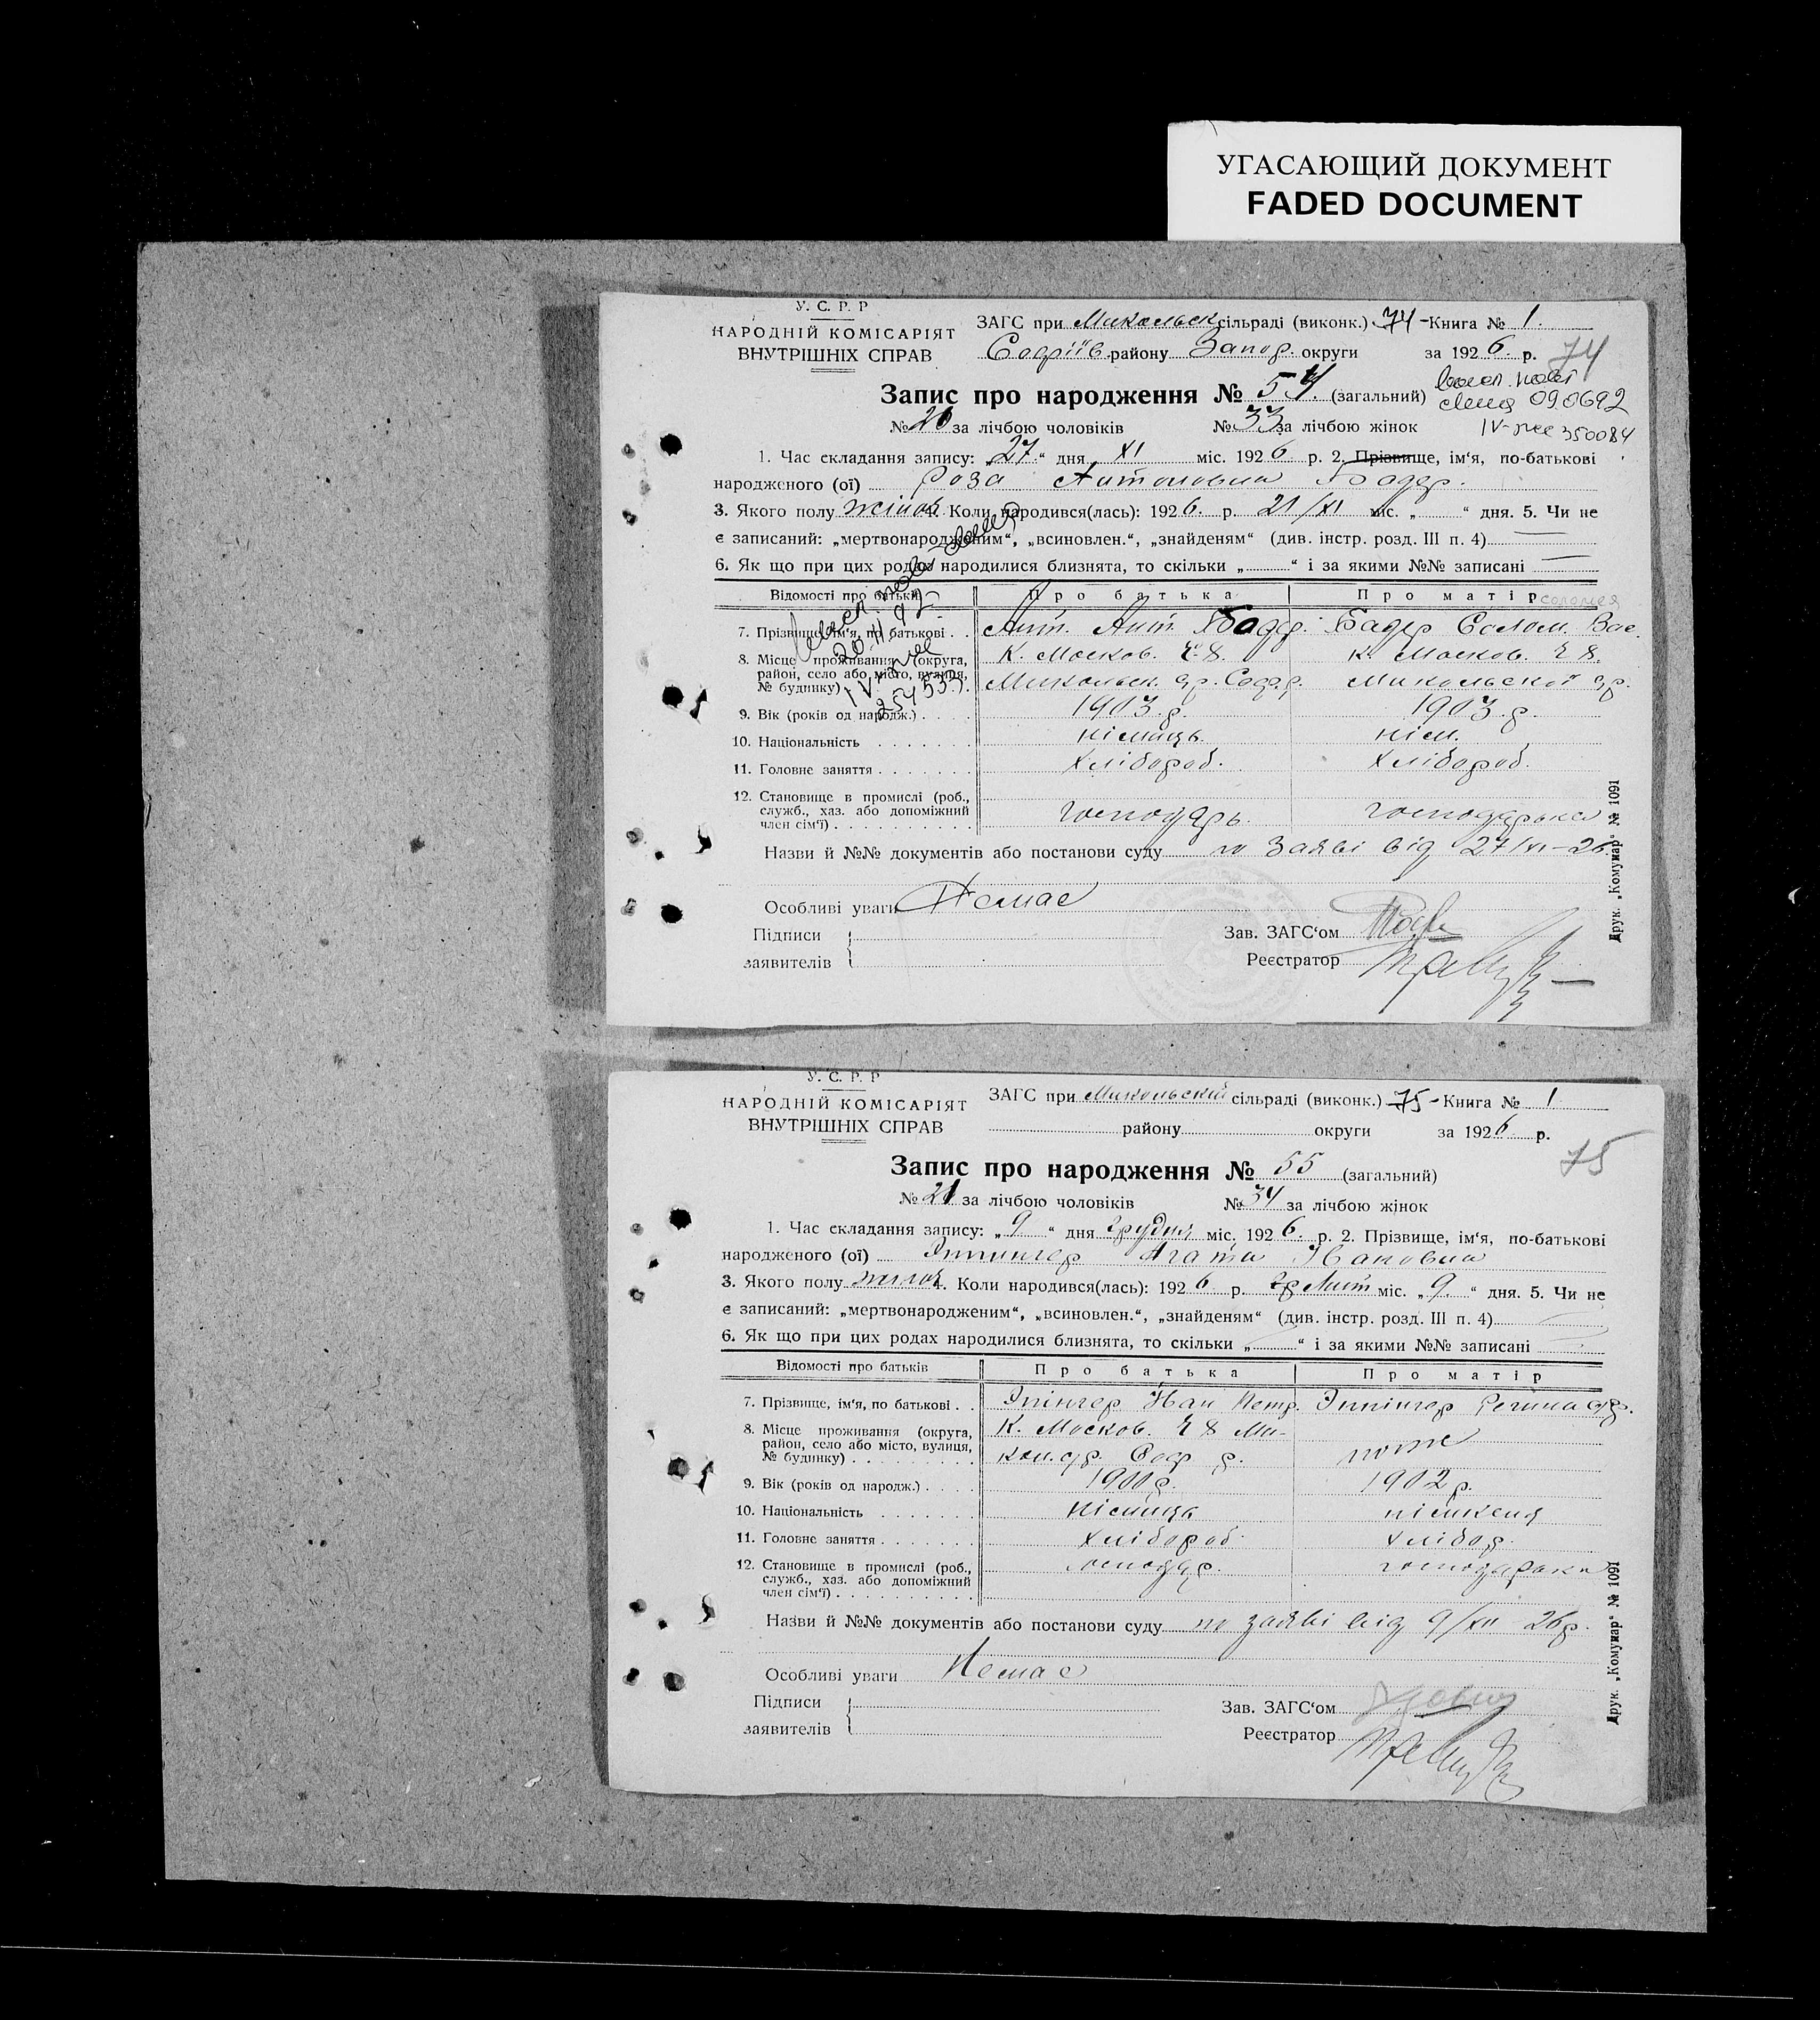 УГАСАЮЩИЙ ДОКУМЕНТ
FADED DOCUMENT
У. С. Р. Р
НАРОДНІЙ КОМІСАРІЯТ
ВНУТРІШНІХ СПРАВ
ЗАГС при Микольск сільраді (виконк.) 74 - Книга № 1.
Софіїв. району Запор. округи за 1926. р. 74
Запис про народження № 54. (загальний)
090692
№ 20 за лічбою чоловіків № 33 за лічбою жінок
IV-
350084
1. Час складання запису: „27“ дня XI міс. 1926 р. 2. Прізвище, ім‘я, по-батькові
народженого (ої) Роза Антоновна Бадер.
3. Якого полу жіноч. 4. Коли народився(лась): 1926. р. 21/XI міс. „ “ дня. 5. Чи не
є записаний: „мертвонародженим“, „всиновлен.“, „знайденям“ (див. інстр. розд. III п. 4)
6. Як що при цих родах народилися близнята, то скільки „ “ і за якими №№ записані
Відомості про батьків Про батька Про матір
7. Прізвище, ім‘я, по батькові . . Ант. Ант. Бадер. Бадер Солом. Вас.
8. Місце проживання (округа, К. Москов. к. Москов.
район, село або місто, вулиця, Микольск. Микольской
№ будинку)
254533.
9. Вік (років од народж.) . . . . 1903. р. 1903. р.
10. Національність . . . . . . . німець нім.
11. Головне заняття . . . . . . . Хлібороб. Хлібороб.
12. Становище в промислі (роб.,
служб., хаз. або допоміжний господарь. господарька
член сім‘ї) . . . . . . . . . .
Назви й №№ документів або постанови суду по заяві від 27/XI-26.
Особливі уваги Немає
Підписи Зав. ЗАГС‘ом
заявителів Реєстратор
Друк. „Комунар“ № 1091
У. С. Р. Р
НАРОДНІЙ КОМІСАРІЯТ
ВНУТРІШНІХ СПРАВ
ЗАГС при Микольскій сільраді (виконк.) 75 - Книга № 1.
району округи за 1926 р.
75
Запис про народження № 55 (загальний)
№ 21 за лічбою чоловіків № 34 за лічбою жінок
1. Час складання запису: „9“ дня Грудня міс. 1926. р. 2. Прізвище, ім‘я, по-батькові
народженого (ої) Эппингер Агата Ивановна
3. Якого полу жіноч. 4. Коли народився(лась): 1926 р. міс. „9.“ дня. 5. Чи не
є записаний: „мертвонародженим“, „всиновлен.“, „знайденям“ (див. інстр. розд. III п. 4)
6. Як що при цих родах народилися близнята, то скільки „ “ і за якими №№ записані
Відомості про батьків Про батька Про матір
7. Прізвище, ім‘я, по батькові . . Эпінгер Иван Петр. Эппінгер Регина
8. Місце проживання (округа, К. Москов. Ми-
район, село або місто, вулиця, кол. Соф р. тоже
№ будинку) . . . . . . . . .
9. Вік (років од народж.) . . . . 1900 р. 1902 р.
10. Національність . . . . . . . німець німкеня
11. Головне заняття . . . . . . . Хлібороб. Хлібор.
12. Становище в промислі (роб., господар. господарька
служб., хаз. або допоміжний
член сім‘ї) . . . . . . . . . .
Назви й №№ документів або постанови суду по заяві від 9/XII 26 р.
Особливі уваги Немає
Підписи Зав. ЗАГС‘ом
заявителів Реєстратор
Друк. „Комунар“ № 1091